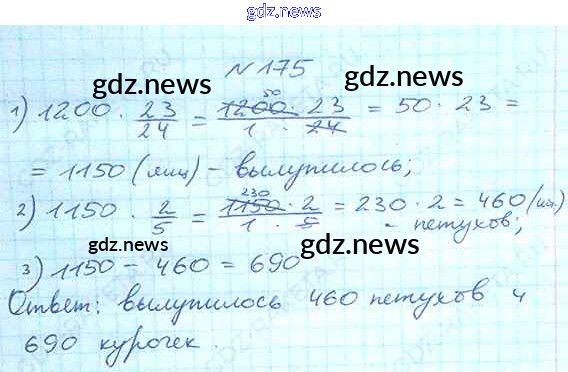 gdz.news
№ 175
gdz.news
1) 1200 · 23/24 = 1200 · 23 / 1 · 24 = 50 · 23 =
50
gdz.news
= 1150 (яиц) - вылупилось;
2) 1150 · 2/5 = 1150 · 2 / 1 · 5 = 230 · 2 = 460 (шт.)
230
- петухов;
gdz.news
gdz.news
3) 1150 - 460 = 690
Ответ: вылупилось 460 петухов и
690 курочек.
gdz.news